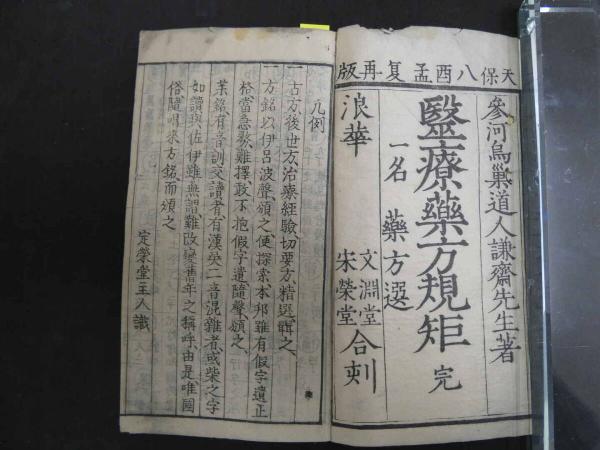 天保八酉孟夏再版
參河烏巢道人謙齋先生著
醫療藥方規矩 完
一名 藥方選
浪華 文淵堂 宋榮堂 合刻
凡例
一古方後世方治療經驗切要方精選輯之
一方銘以伊呂波聲類之便探索本邦雖有假字遣正
格當急務難擇故不抱假字遣隨聲類之
某銘有音訓交讀者有漢吳二音混雜者或柴之字
如讀與佐伊雖無謂難改變舊年之稱呼由是唯國
俗隨唱來方銘而類之
定榮堂主人識